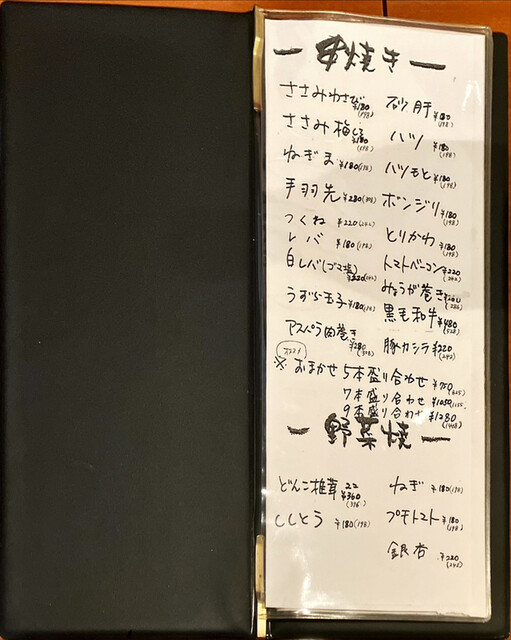 ー串焼きー
ささみわさび ¥180 (198)
ささみ梅しそ ¥180 (198)
ねぎま ¥180 (198)
手羽先 ¥280 (308)
つくね ¥220 (242)
レバ ¥180 (198)
白レバ(ゴマ塩) ¥220 (242)
うずら玉子 ¥180 (198)
アスパラ肉巻き ¥280 (308)
砂肝 ¥180 (198)
ハツ ¥180 (198)
ハツもと ¥180 (198)
ボンジリ ¥180 (198)
とりかわ ¥180 (198)
トマトベーコン ¥220 (242)
みょうが巻き
黒毛和牛 ¥480 (528)
豚カシラ ¥220 (242)
※おまかせ 5本盛り合わせ ¥750 (825)
7本盛り合わせ ¥1050 (1155)
9本盛り合わせ ¥1280 (1408)
ー野菜焼ー
どんこ椎茸 ¥360 (396)
ししとう ¥180 (198)
ねぎ ¥180 (198)
プチトマト ¥180 (198)
銀杏 ¥220 (242)